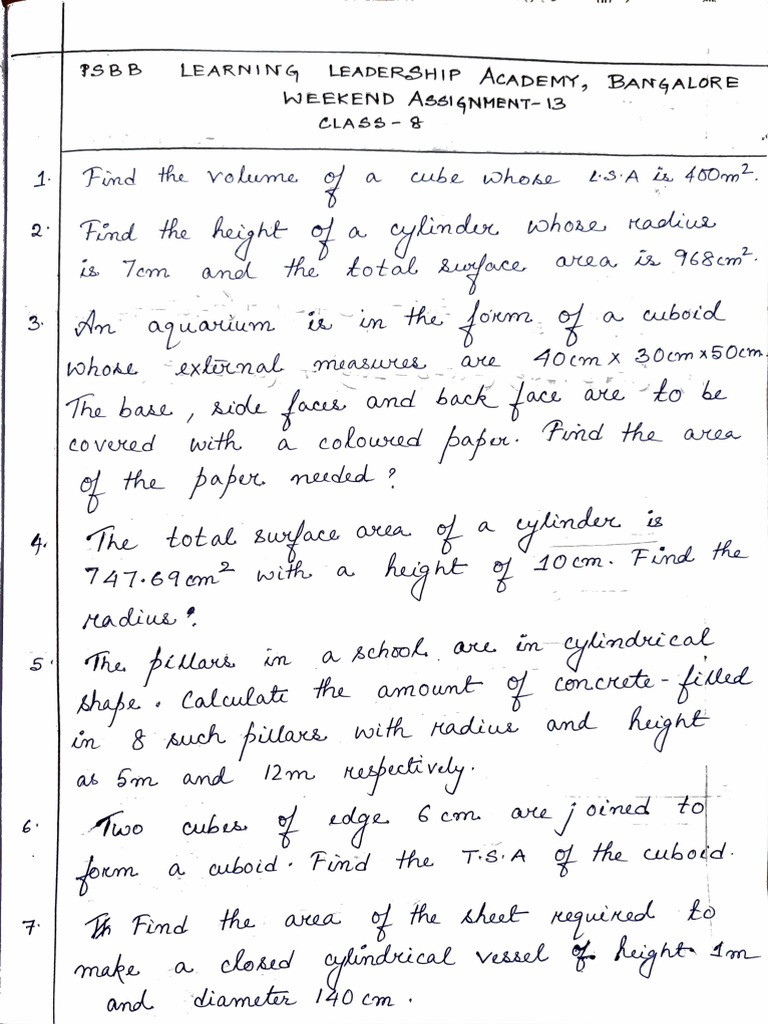 PSBB LEARNING LEADERSHIP ACADEMY, BANGALORE
WEEKEND ASSIGNMENT-13
CLASS - 8
1. Find the volume of a cube whose L.S.A is 400m².
2. Find the height of a cylinder whose radius
is 7cm and the total surface area is 968cm².
3. An aquarium is in the form of a cuboid
whose external measures are 40cm x 30cm x 50cm.
The base, side faces and back face are to be
covered with a coloured paper. Find the area
of the paper needed?
4. The total surface area of a cylinder is
747.69cm² with a height of 10cm. Find the
radius?
5. The pillars in a school are in cylindrical
shape. Calculate the amount of concrete-filled
in 8 such pillars with radius and height
as 5m and 12m respectively.
6. Two cubes of edge 6cm are joined to
form a cuboid. Find the T.S.A of the cuboid.
7. Find the area of the sheet required to
make a closed cylindrical vessel of height 1m
and diameter 140cm.